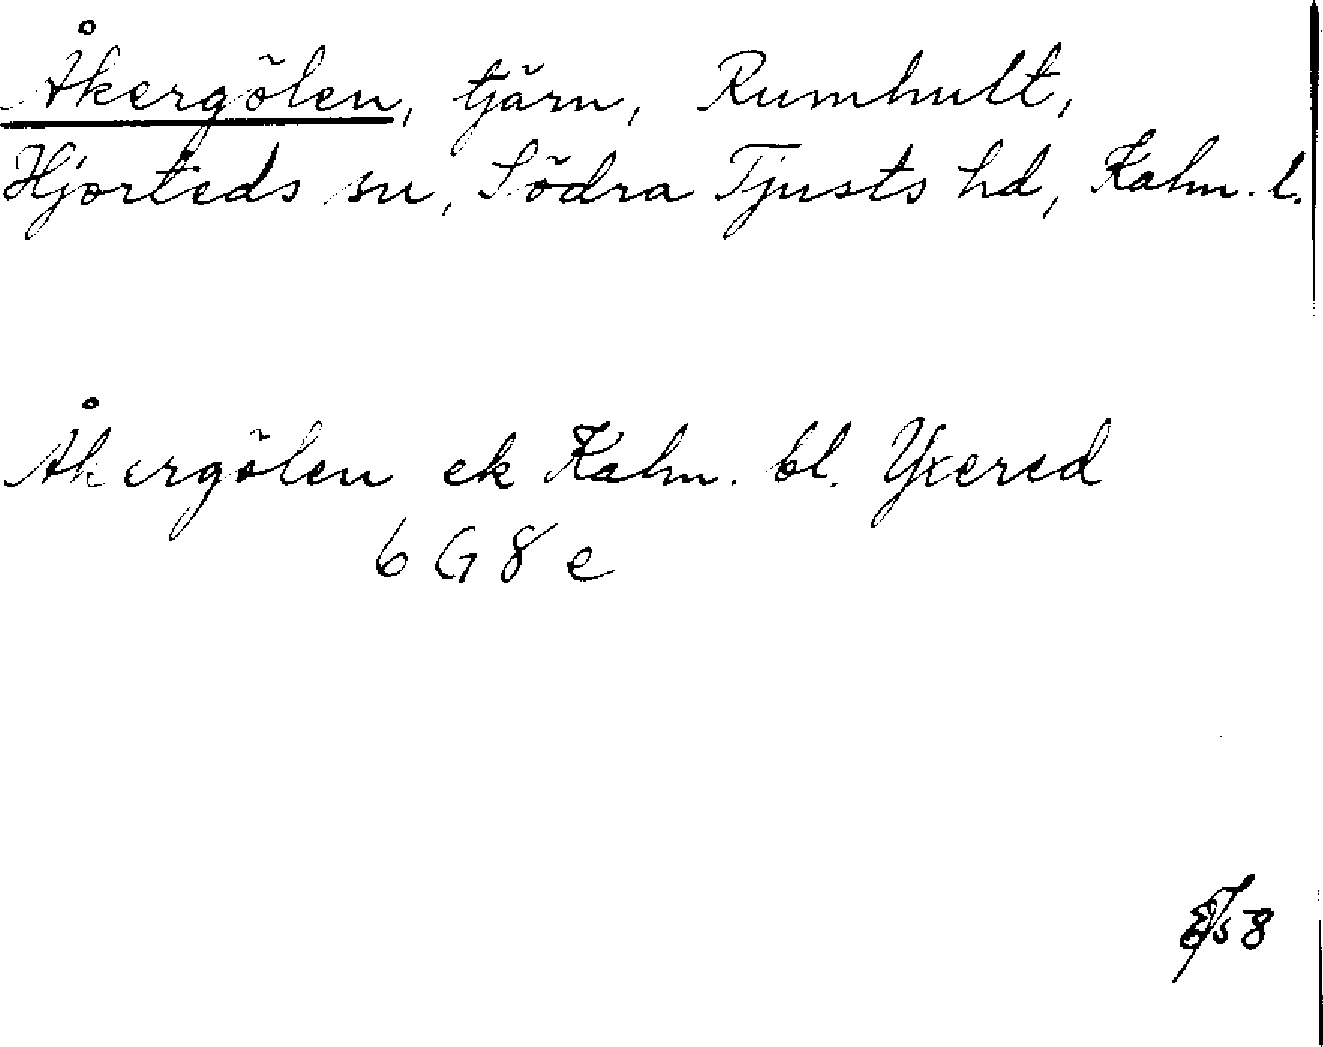 Åkergölen, tjärn, Rumhult,
Hjorteds sn, Södra Tjusts hd, Kalm. l.
Åkergölen ek Kalm. bl. Yxered
6 G 8 e